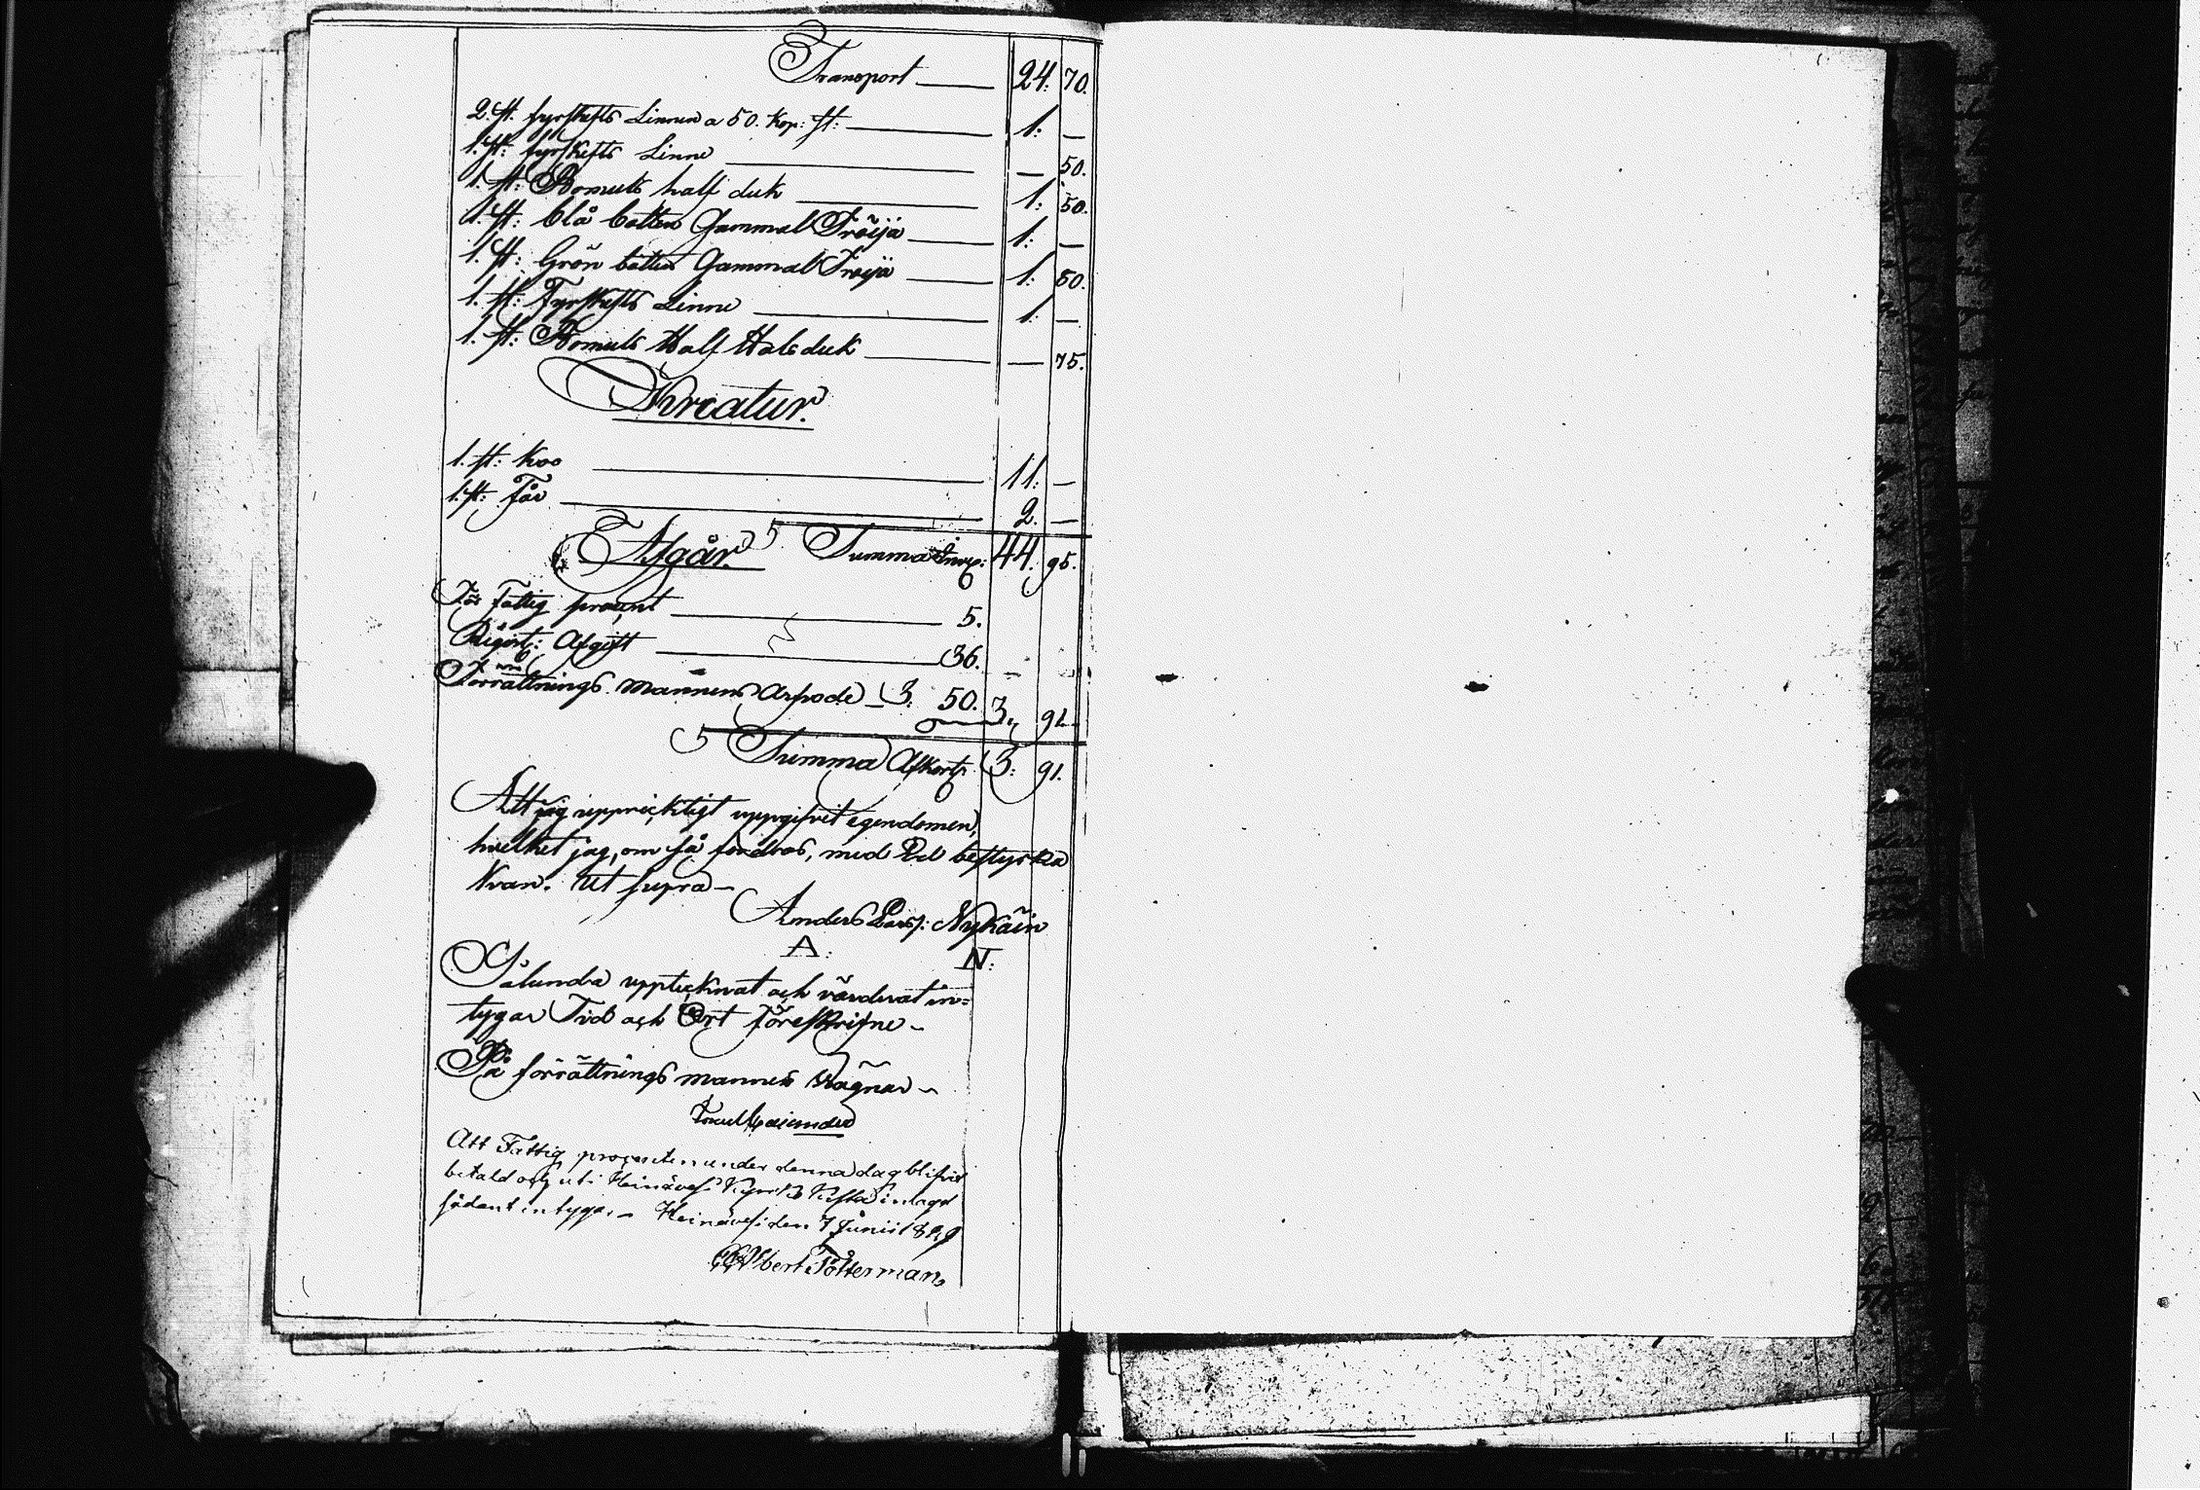 Transport — 24: 70.
2. st. fyrskefts Linnen a 50. Kop: st: — 1: —
1. st: fyrskefts Linne — — 50.
1. st: Bomuls half duk — 1: 50.
1. st: blå botten Gammal Tröija — 1: —
1. st: Grön botten Gammal Tröija — 1: 50.
1. st: Fyrskefts Linne — 1: —
1. st: Bomuls Half Halsduk — — 75.
Kreatur.
1. st: Koo — 11: —
1. st: Får — 2. —
Afgår. Summa Inv: 44. 95.
För Fattig procent — 5.
Afgift — 36.
Förrättnings mannens Arfvode — 3: 50. 3. 91.
Summa Afkort: 3: 91.
Att jag uppricktigt uppgifvit egendomen,
hvelket jag, om så fordras, med Ed bestyrka
kan. Ut supra —
Anders Nykäin
A: N:
Sålunda upptecknat och värderat in=
tygar Tid och Ort föreskrifne —
På förrättnings mannens vägnar —
Att Fattig procenten under denna dag blifvit
betald och uti Heinävesi Kyrko Kassa inlagd
sådant intygar. — Heinävesi den 7 Junii
Töttermann